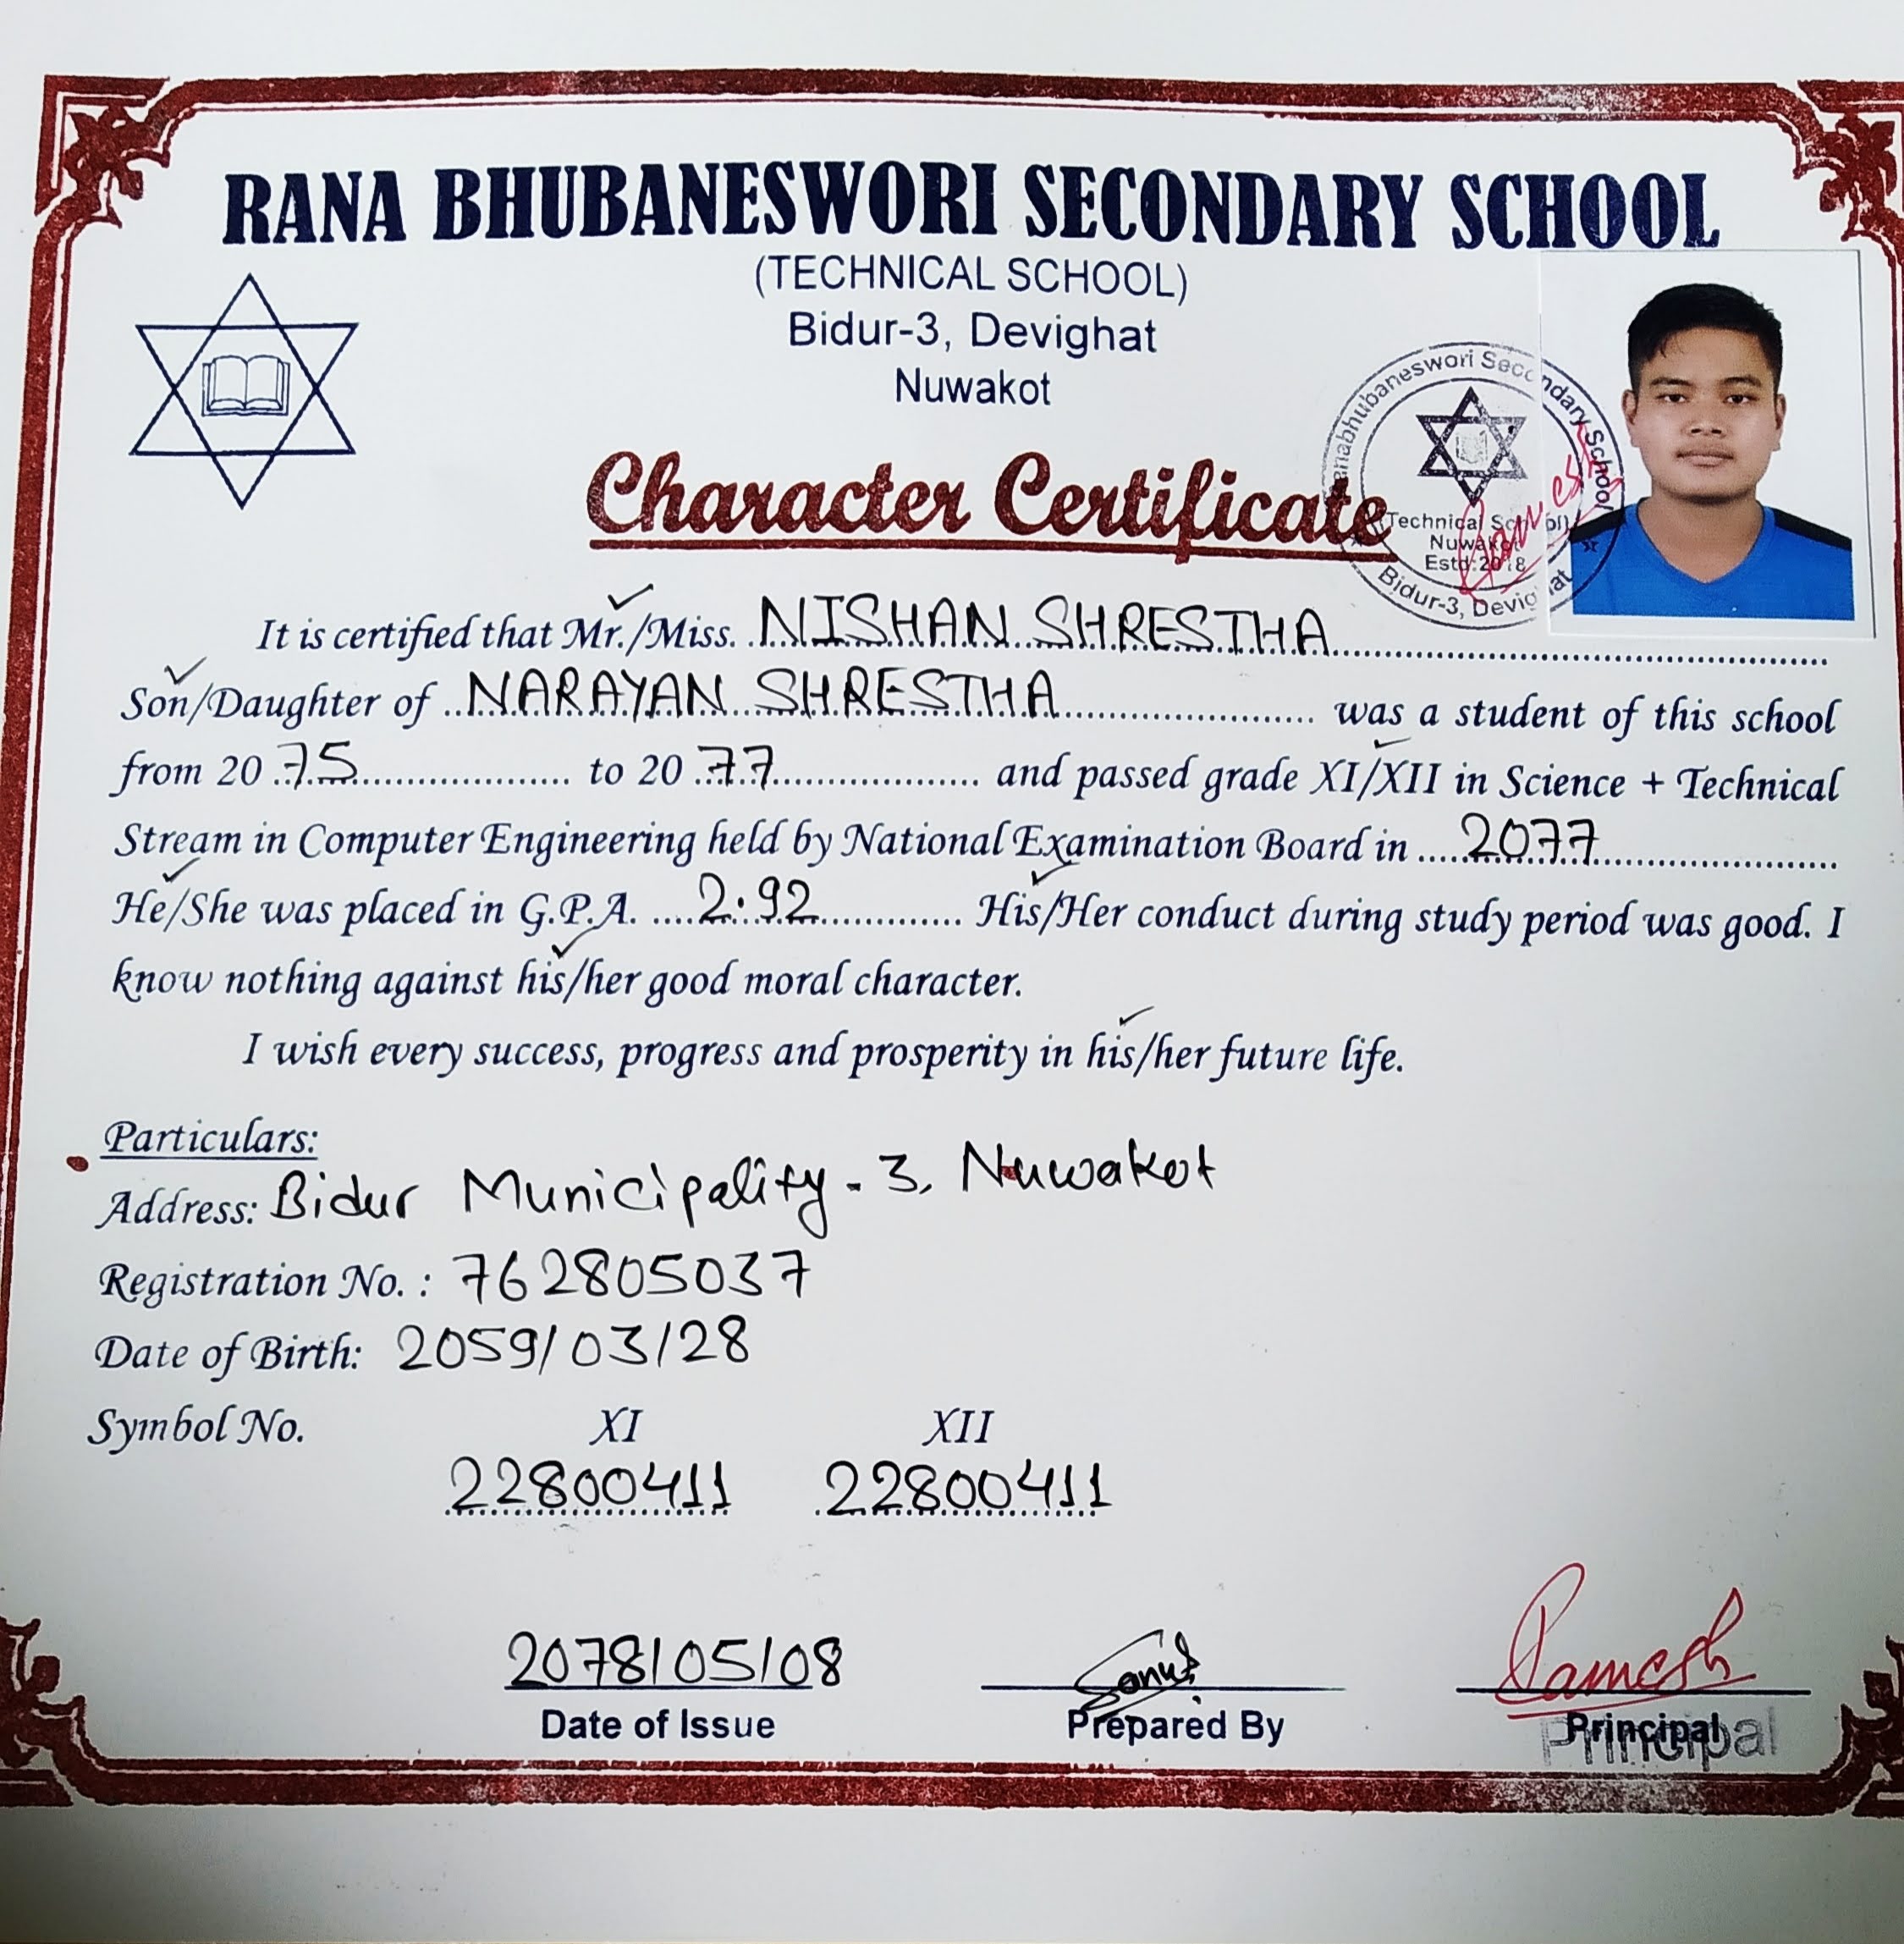 RANA BHUBANESWORI SECONDARY SCHOOL
(TECHNICAL SCHOOL)
Bidur-3, Devighat
Nuwakot
Character Certificate
Ranabhubaneswori Secondary School
(Technical School)
Nuwakot
Estd:2018
Bidur-3, Devighat
Ramesh
It is certified that Mr./Miss. NISHAN SHRESTHA
Son/Daughter of NARAYAN SHRESTHA was a student of this school
from 20 75 to 20 77 and passed grade XI/XII in Science + Technical
Stream in Computer Engineering held by National Examination Board in 2077
He/She was placed in G.P.A. 2.92 His/Her conduct during study period was good. I
know nothing against his/her good moral character.
I wish every success, progress and prosperity in his/her future life.
Particulars:
Address: Bidur Municipality - 3, Nuwakot
Registration No. : 762805037
Date of Birth: 2059/03/28
Symbol No. XI XII
22800411 22800411
2078/05/08 Ramesh
Date of Issue Prepared By Principal
Principal